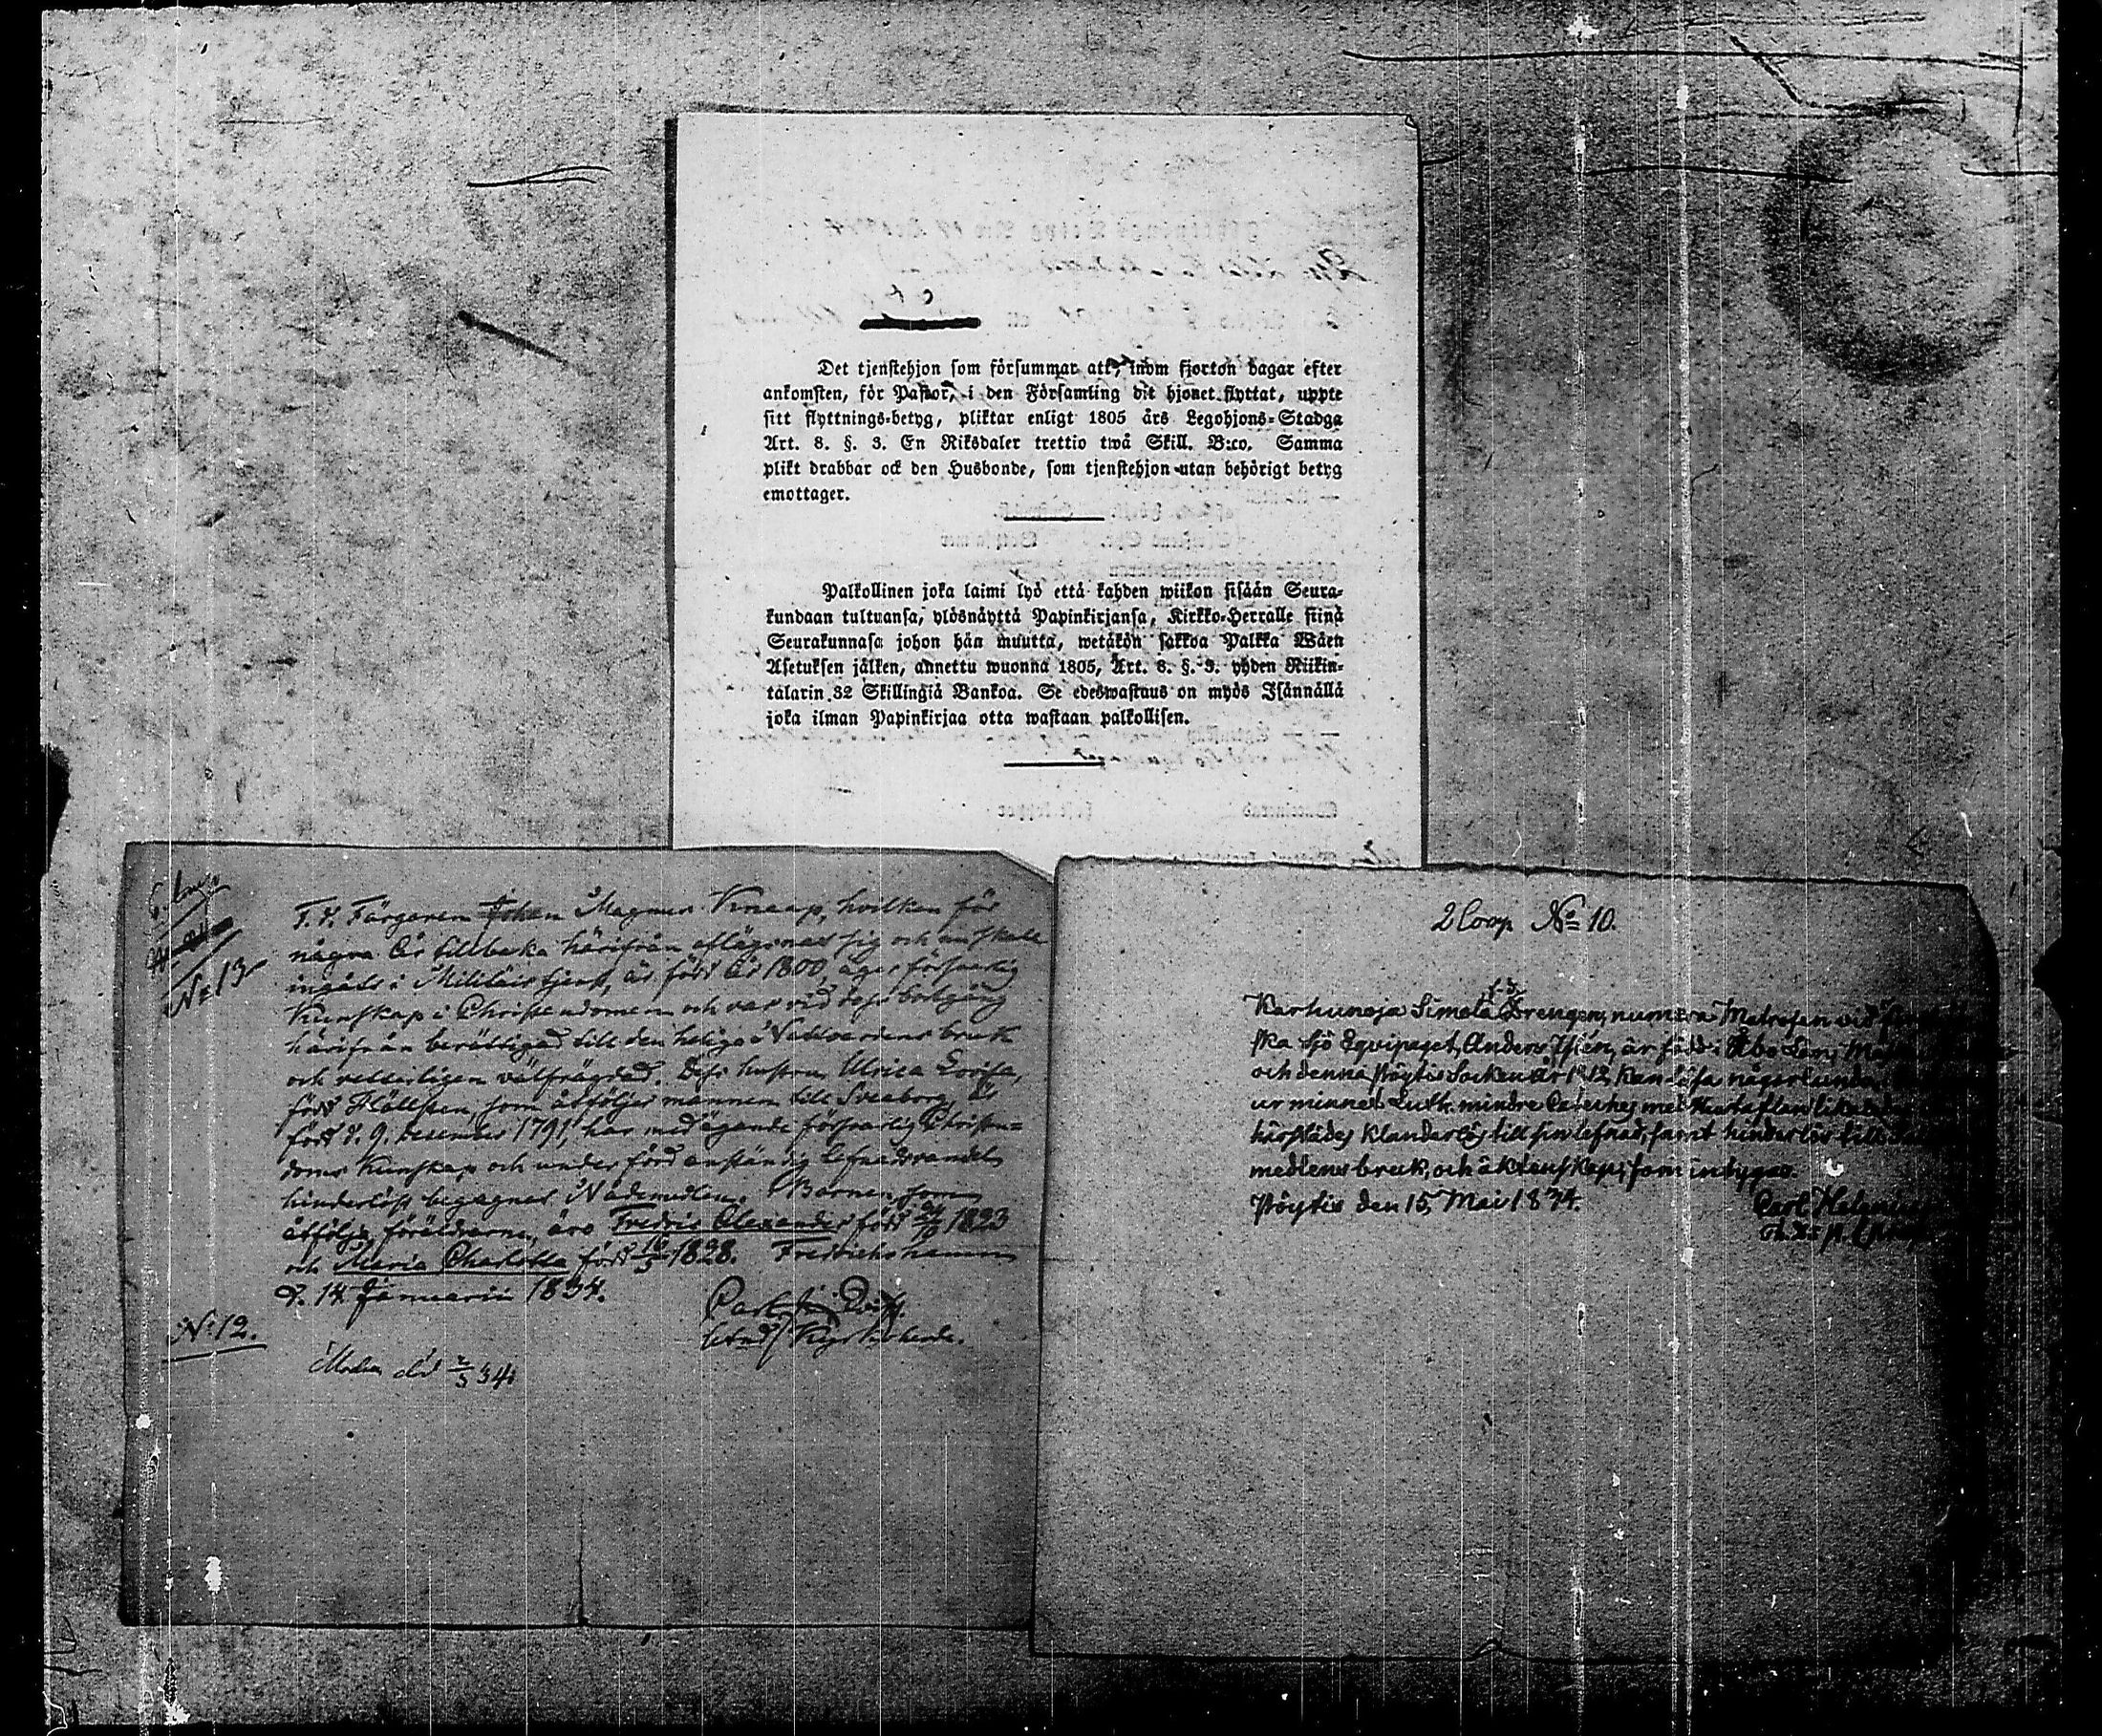 Det tjenstehjon som försummar att, inom fjorton dagar efter
ankomsten, för Pastor, i den Församling dit hjonet flyttat, uppte
sitt flyttnings-betyg, pliktar enligt 1805 års Legohjons-Stadga
Art. 8. §. 3. En Riksdaler trettio twå Skill. B:co. Samma
plikt drabbar ock den Husbonde, som tjenstehjon utan behörigt betyg
emottager.
Palkollinen joka laimi lyö että kahden wiikon sisään Seura-
kundaan tultuansa, ylösnäyttä Papinkirjansa, Kirkko-Herralle siinä
Seurakunnasa johon hän muutta, wetäkön sakkoa Palkka Wäen
Asetuksen jälken, annettu wuonna 1805, Art. 8. §. 3. yhden Riikin-
talarin 32 Skillingiä Bankoa. Se edeswastaus on myös Isännällä
joka ilman Papinkirjaa otta wastaan palkollisen.
No 13
F. d. Färgaren Johan Magnus Knaap, hvilken för
några år tillbaka härifrån aflägsnat sig och
ingått i Militair tjenst, är född år 1800, äger försvarlig
Kunskap i Christendomen och var vid dess bortgång
härifrån berättigad till den heliga Nattvardens bruk
och välfrägdad. Dess hustru Ulrica Lovisa,
född som åtföljer mannen till Sveaborg, är
född d. 9. December 1791, har med ägande försvarlig Christen-
doms Kunskap och under förd anständig lefnadsvandel
hinderlöst begagnat Nådemedlen. Barnen, som
åtfölja föräldrarne, äro Fredric Alexander född 24/10 1823
och Maria Charlotta född 16/5 1828. Fredrichshamn
d. 14 Januarii 1834.
No 12.
Modren död 2/3 34
2 Comp No 10.
Karhunoja Simola Drengen, numera Matrosen vid
ska Sjö Eqvipaget, Anders är född i Åbo Län,
och denna Pöytis Socken år 1812, kan läsa någorlunda
ur minnet Luth. mindre Cateches med Hustaflan
härstädes klanderlös till sin lefnad, samt hinderlös till
medlens bruk, och äktenskap; som intygas.
Pöytis den 15 Mai 1834.
Carl Helenius